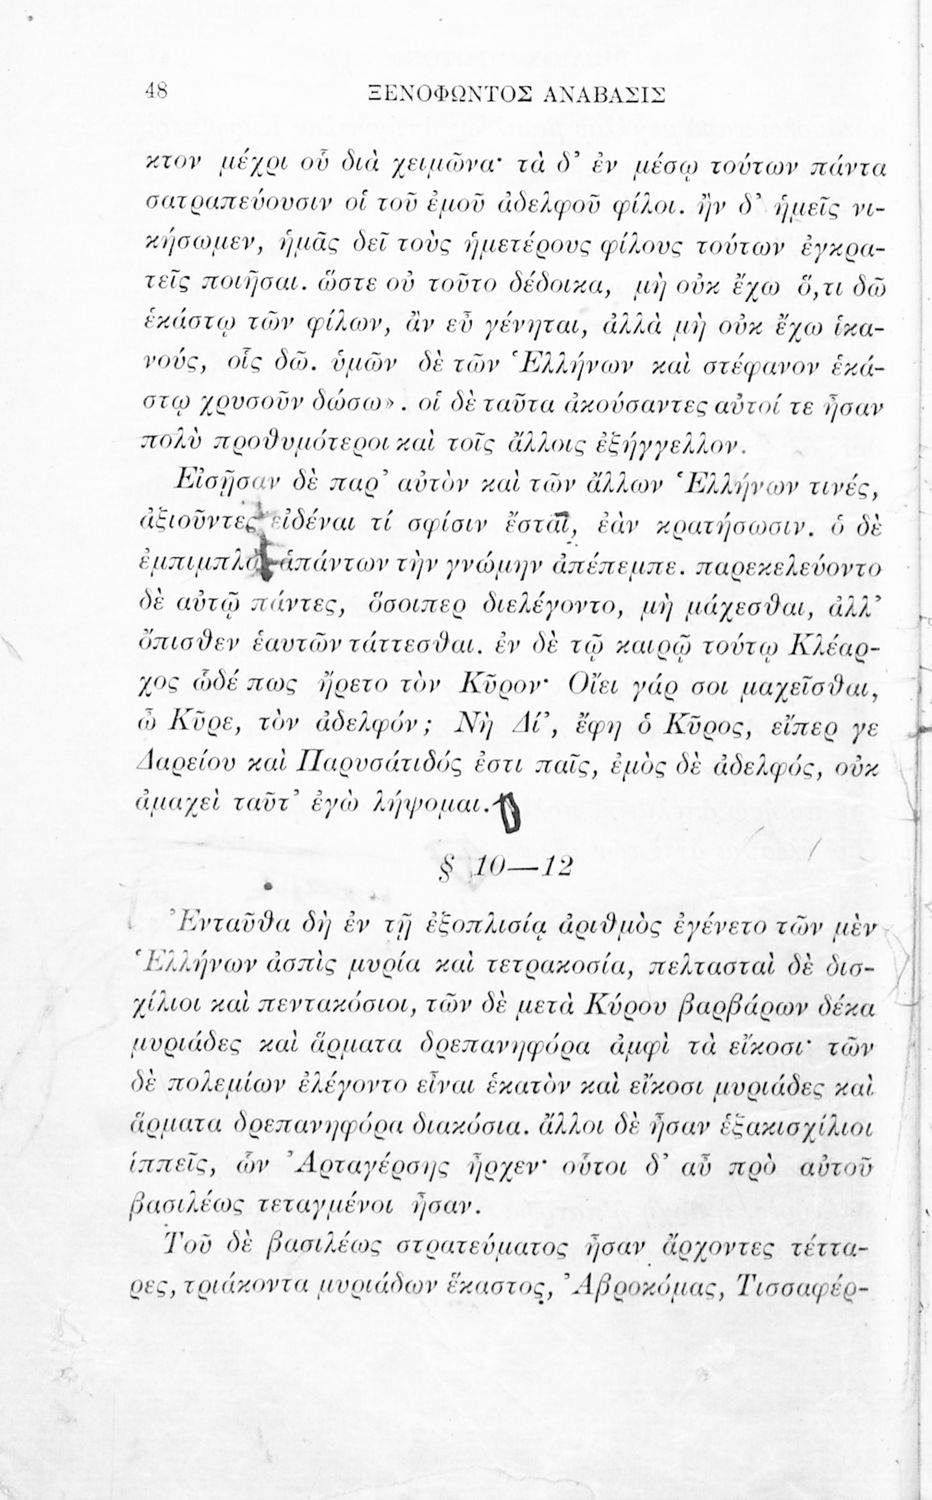 48
ΞΕΝΟΦΩΝΤΟΣ ΑΝΑΒΑΣΙΣ
κτον μέχρι οὗ διὰ χειμῶνα· τὰ δ’ ἐν μέσῳ τούτων πάντα
σατραπεύουσιν οἱ τοῦ ἐμοῦ ἀδελφοῦ φίλοι. ἢν δ’ ἡμεῖς νι-
κήσωμεν, ἡμᾶς δεῖ τοὺς ἡμετέρους φίλους τούτων ἐγκρα-
τεῖς ποιῆσαι. ὥστε οὐ τοῦτο δέδοικα, μὴ οὐκ ἔχω ὅ,τι δῶ
ἑκάστῳ τῶν φίλων, ἂν εὖ γένηται, ἀλλὰ μὴ οὐκ ἔχω ἱκα-
νούς, οἷς δῶ. ὑμῶν δὲ τῶν Ἑλλήνων καὶ στέφανον ἑκά-
στῳ χρυσοῦν δώσω». οἱ δὲ ταῦτα ἀκούσαντες αὐτοί τε ἦσαν
πολὺ προθυμότεροι καὶ τοῖς ἄλλοις ἐξήγγελλον.
Εἰσῇσαν δὲ παρ’ αὐτὸν καὶ τῶν ἄλλων Ἑλλήνων τινές,
ἀξιοῦντες εἰδέναι τί σφίσιν ἔσται, ἐὰν κρατήσωσιν. ὁ δὲ
ἐμπιμπλὰς ἁπάντων τὴν γνώμην ἀπέπεμπε. παρεκελεύοντο
δὲ αὐτῷ πάντες, ὅσοιπερ διελέγοντο, μὴ μάχεσθαι, ἀλλ’
ὄπισθεν ἑαυτῶν τάττεσθαι. ἐν δὲ τῷ καιρῷ τούτῳ Κλέαρ-
χος ὧδέ πως ἤρετο τὸν Κῦρον· Οἴει γάρ σοι μαχεῖσθαι,
ὦ Κῦρε, τὸν ἀδελφόν; Νὴ Δί’, ἔφη ὁ Κῦρος, εἴπερ γε
Δαρείου καὶ Παρυσάτιδός ἐστι παῖς, ἐμὸς δὲ ἀδελφός, οὐκ
ἀμαχεὶ ταῦτ’ ἐγὼ λήψομαι.
§ 10—12
Ἐνταῦθα δὴ ἐν τῇ ἐξοπλισίᾳ ἀριθμὸς ἐγένετο τῶν μὲν
Ἑλλήνων ἀσπὶς μυρία καὶ τετρακοσία, πελτασταὶ δὲ δισ-
χίλιοι καὶ πεντακόσιοι, τῶν δὲ μετὰ Κύρου βαρβάρων δέκα
μυριάδες καὶ ἅρματα δρεπανηφόρα ἀμφὶ τὰ εἴκοσι· τῶν
δὲ πολεμίων ἐλέγοντο εἶναι ἑκατὸν καὶ εἴκοσι μυριάδες καὶ
ἅρματα δρεπανηφόρα διακόσια. ἄλλοι δὲ ἦσαν ἑξακισχίλιοι
ἱππεῖς, ὧν Ἀρταγέρσης ἦρχεν· οὗτοι δ’ αὖ πρὸ αὐτοῦ
βασιλέως τεταγμένοι ἦσαν.
Τοῦ δὲ βασιλέως στρατεύματος ἦσαν ἄρχοντες τέττα-
ρες, τριάκοντα μυριάδων ἕκαστος, Ἀβροκόμας, Τισσαφέρ-